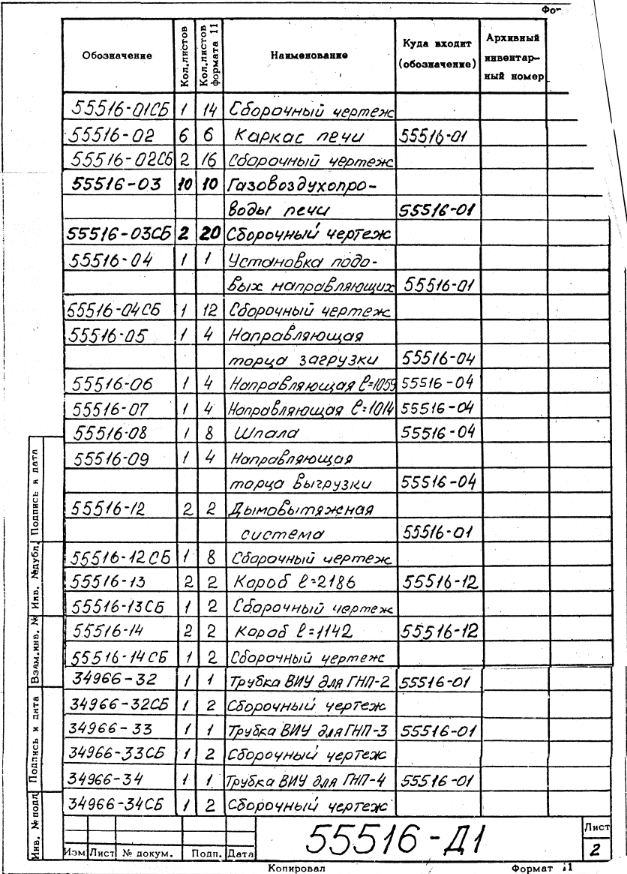 Фо
Обозначение Кол.листов Кол.листов формата 11 Наименование Куда входит (обозначение) Архивный инвентарный номер
55516-01СБ 1 14 Сборочный чертеж
55516-02 6 6 Каркас печи 55516-01
55516-02СБ 2 16 Сборочный чертеж
55516-03 10 10 Газовоздухопро-
воды печи 55516-01
55516-03СБ 2 20 Сборочный чертеж
55516-04 1 1 Установка подо-
вых направляющих 55516-01
55516-04СБ 1 12 Сборочный чертеж
55516-05 1 4 Направляющая
торца загрузки 55516-04
55516-06 1 4 Направляющая ℓ=1059 55516-04
55516-07 1 4 Направляющая ℓ=1014 55516-04
55516-08 1 8 Шпала 55516-04
55516-09 1 4 Направляющая
торца выгрузки 55516-04
55516-12 2 2 Дымовытяженая
система 55516-01
55516-12СБ 1 8 Сборочный чертеж
55516-13 2 2 Короб ℓ=2186 55516-12
55516-13СБ 1 2 Сборочный чертеж
55516-14 2 2 Короб ℓ=1142 55516-12
55516-14СБ 1 2 Сборочный чертеж
34966-32 1 1 Трубка ВИУ для ГНП-2 55516-01
34966-32СБ 1 2 Сборочный чертеж
34966-33 1 1 Трубка ВИУ для ГНП-3 55516-01
34966-33СБ 1 2 Сборочный чертеж
34966-34 1 1 Трубка ВИУ для ГНП-4 55516-01
34966-34СБ 1 2 Сборочный чертеж
Подпись и дата
Инв. №дубл.
Взам.инв. №
Подпись и дата
Инв. № подл
Изм Лист № докум. Подп. Дата
55516-Д1
Лист
2
Копировал Формат 11